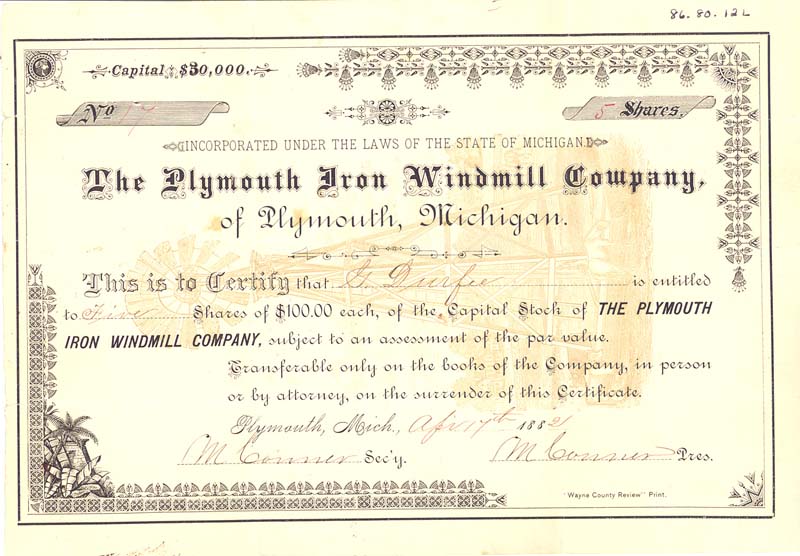 86.80.12L
Capital $30,000.
No 17
5 Shares.
INCORPORATED UNDER THE LAWS OF THE STATE OF MICHIGAN.
The Plymouth Iron Windmill Company,
of Plymouth, Michigan.
This is to Certify that G Durfee is entitled
to Five Shares of $100.00 each, of the Capital Stock of THE PLYMOUTH
IRON WINDMILL COMPANY, subject to an assessment of the par value.
Transferable only on the books of the Company, in person
or by attorney, on the surrender of this Certificate.
Plymouth, Mich., Apr 17th 1882
M Conner Sec'y. M Conner Pres.
"Wayne County Review" Print.